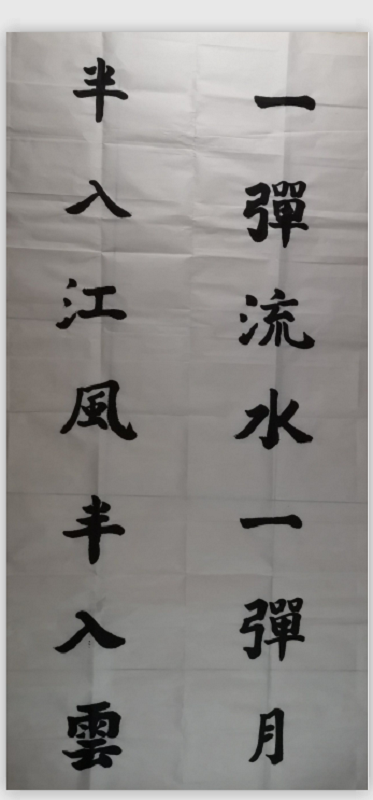 一彈流水一彈月
半入江風半入雲